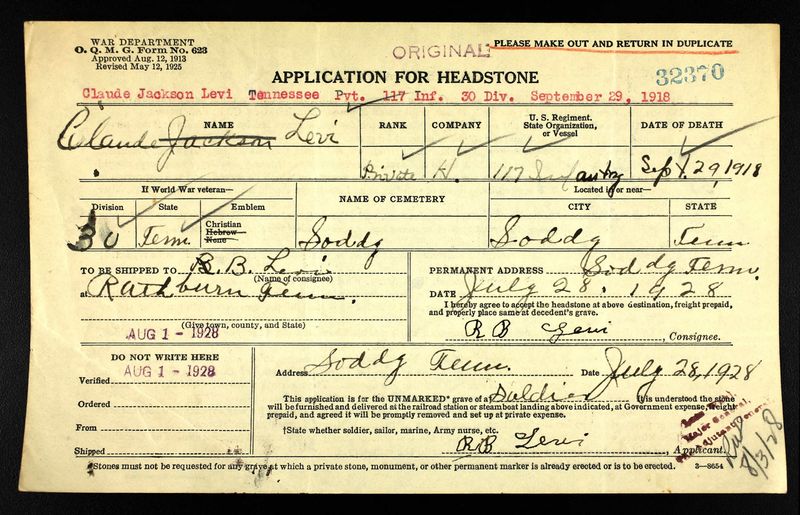 WAR DEPARTMENT
O. Q. M. G. Form No. 623
Approved Aug. 12, 1913
Revised May 12, 1925
ORIGINAL
PLEASE MAKE OUT AND RETURN IN DUPLICATE
APPLICATION FOR HEADSTONE
32370
Claude Jackson Levi Tennessee Pvt. 117 Inf. 30 Div. September 29, 1918
NAME
RANK
COMPANY
U. S. Regiment. State Organization, or Vessel
DATE OF DEATH
Claude Jackson Levi
Private
H.
117 Infantry
Sept. 29, 1918
If World War veteran—
Division
State
Emblem
NAME OF CEMETERY
Located in or near—
CITY
STATE
30
Tenn
Christian
Hebrew
None
Soddy
Soddy
Tenn
TO BE SHIPPED TO B. B. Levi
(Name of consignee)
at Rathburn Tenn.
(Give town, county, and State)
AUG 1 - 1928
PERMANENT ADDRESS Soddy Tenn.
DATE July 28. 1928
I hereby agree to accept the headstone at above destination, freight prepaid,
and properly place same at decedent's grave.
R B Levi Consignee.
DO NOT WRITE HERE
AUG 1 - 1928
Verified
Ordered
From
Shipped
Address Soddy Tenn. Date July 28, 1928
This application is for the UNMARKED* grave of a Soldier It is understood the stone
will be furnished and delivered at the railroad station or steamboat landing above indicated, at Government expense, freight
prepaid, and agreed it will be promptly removed and set up at private expense.
†State whether soldier, sailor, marine, Army nurse, etc.
R B Levi Applicant.
Major General,
The Adjutant General
8/3/28
*Stones must not be requested for any grave at which a private stone, monument, or other permanent marker is already erected or is to be erected.
3—8654